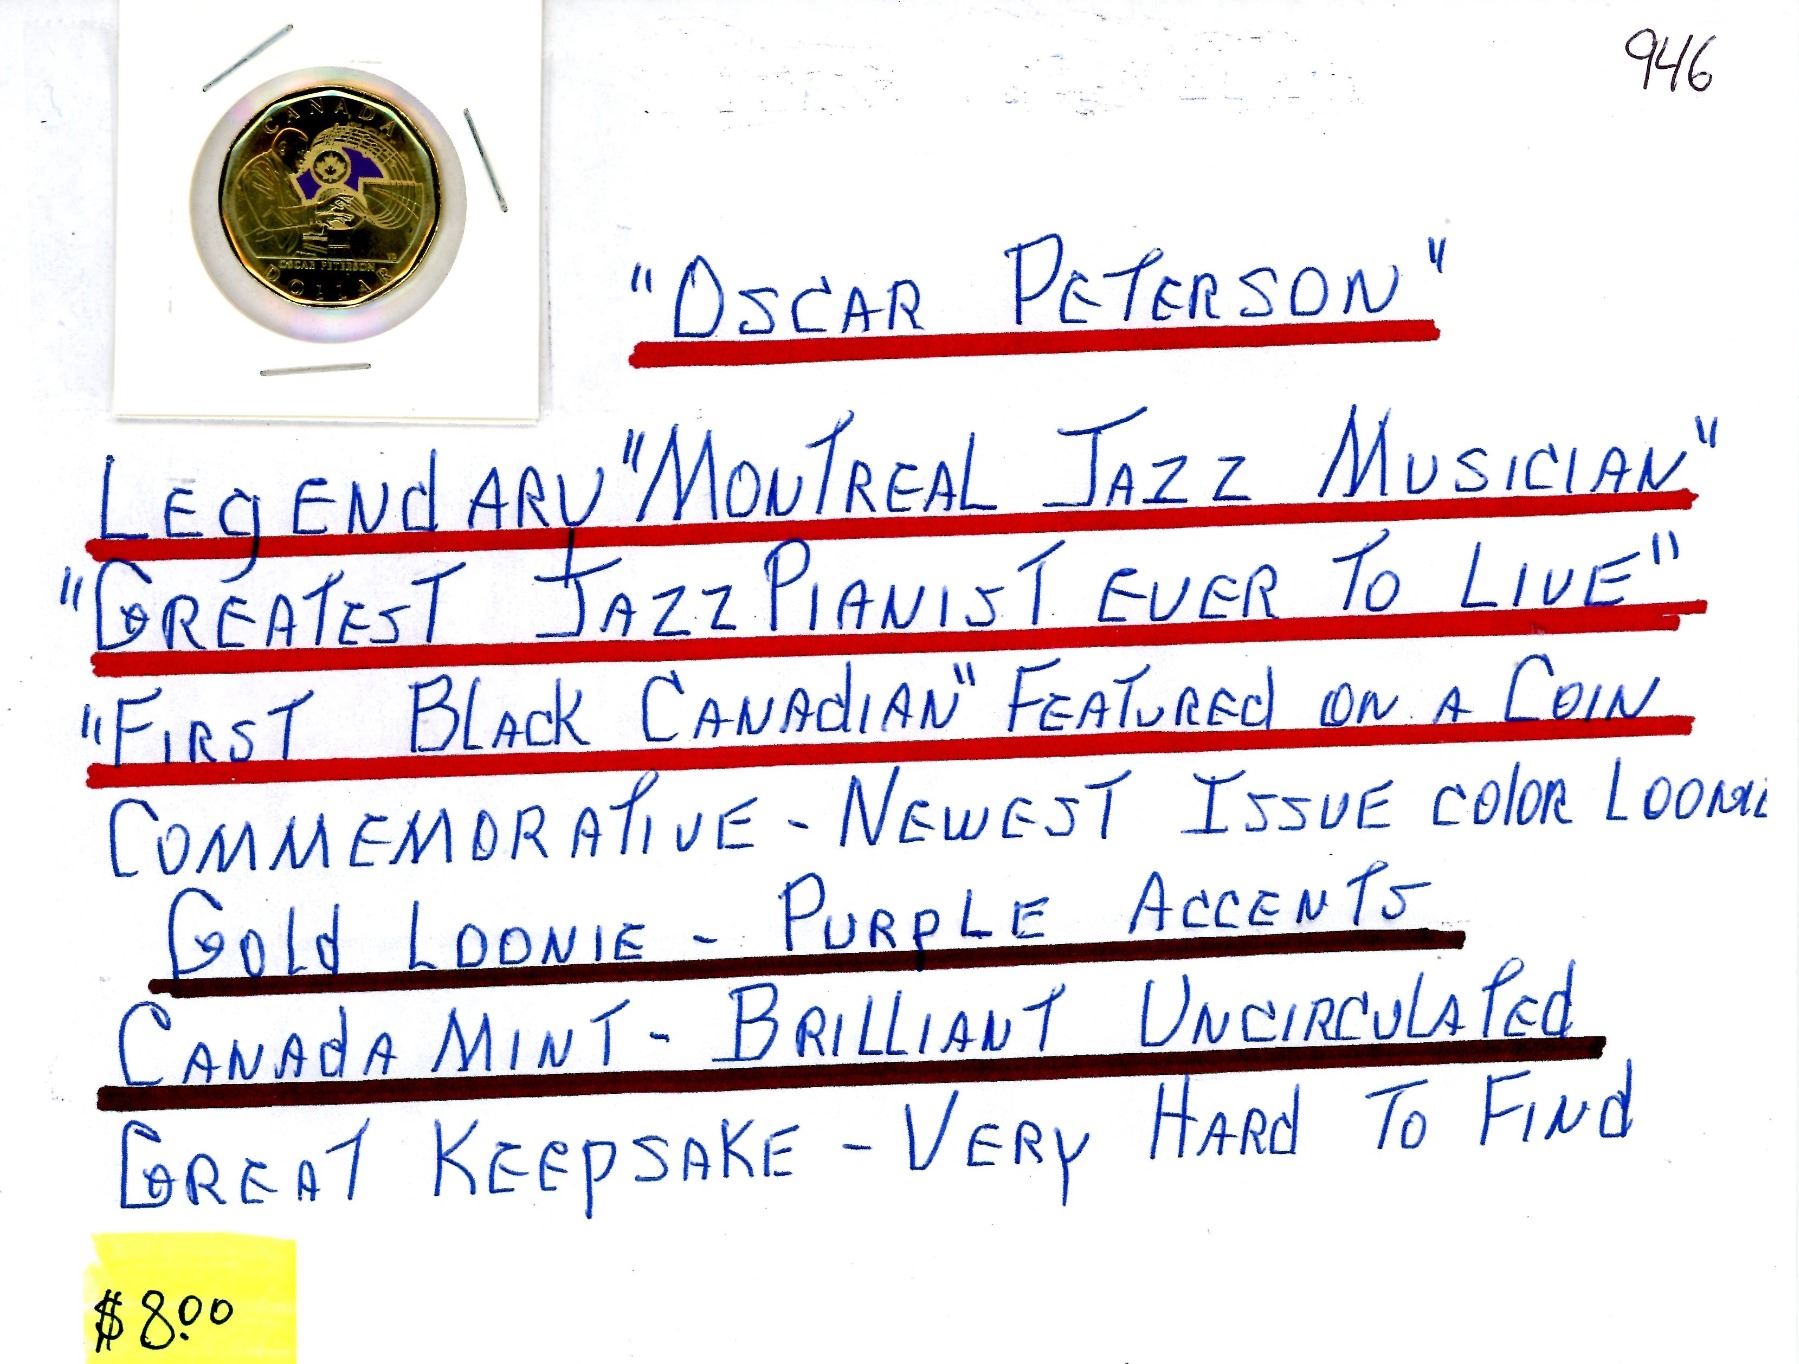 946
CANADA
OSCAR PETERSON
DOLLAR
"OSCAR PETERSON"
LEgENdARY "MONTREAL JAZZ MUSICIAN"
"GREATEST JAZZ PIANIST EVER TO LIVE"
"FIRST BLACK CANAdIAN" FEATURED ON A COIN
COMMEMORATIVE - NEWEST ISSUE COLOR LOONIE
GOLd LOONIE - PURPLE ACCENTS
CANAdA MINT - BRILLIANT UNCIRCULATEd
GREAT KEEPSAKE - VERY HARd TO FINd
$8.00